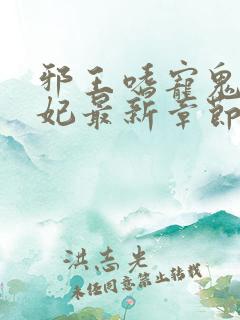 邪王嗜宠鬼
妃最新章节
洪志光
未经同意禁止转载